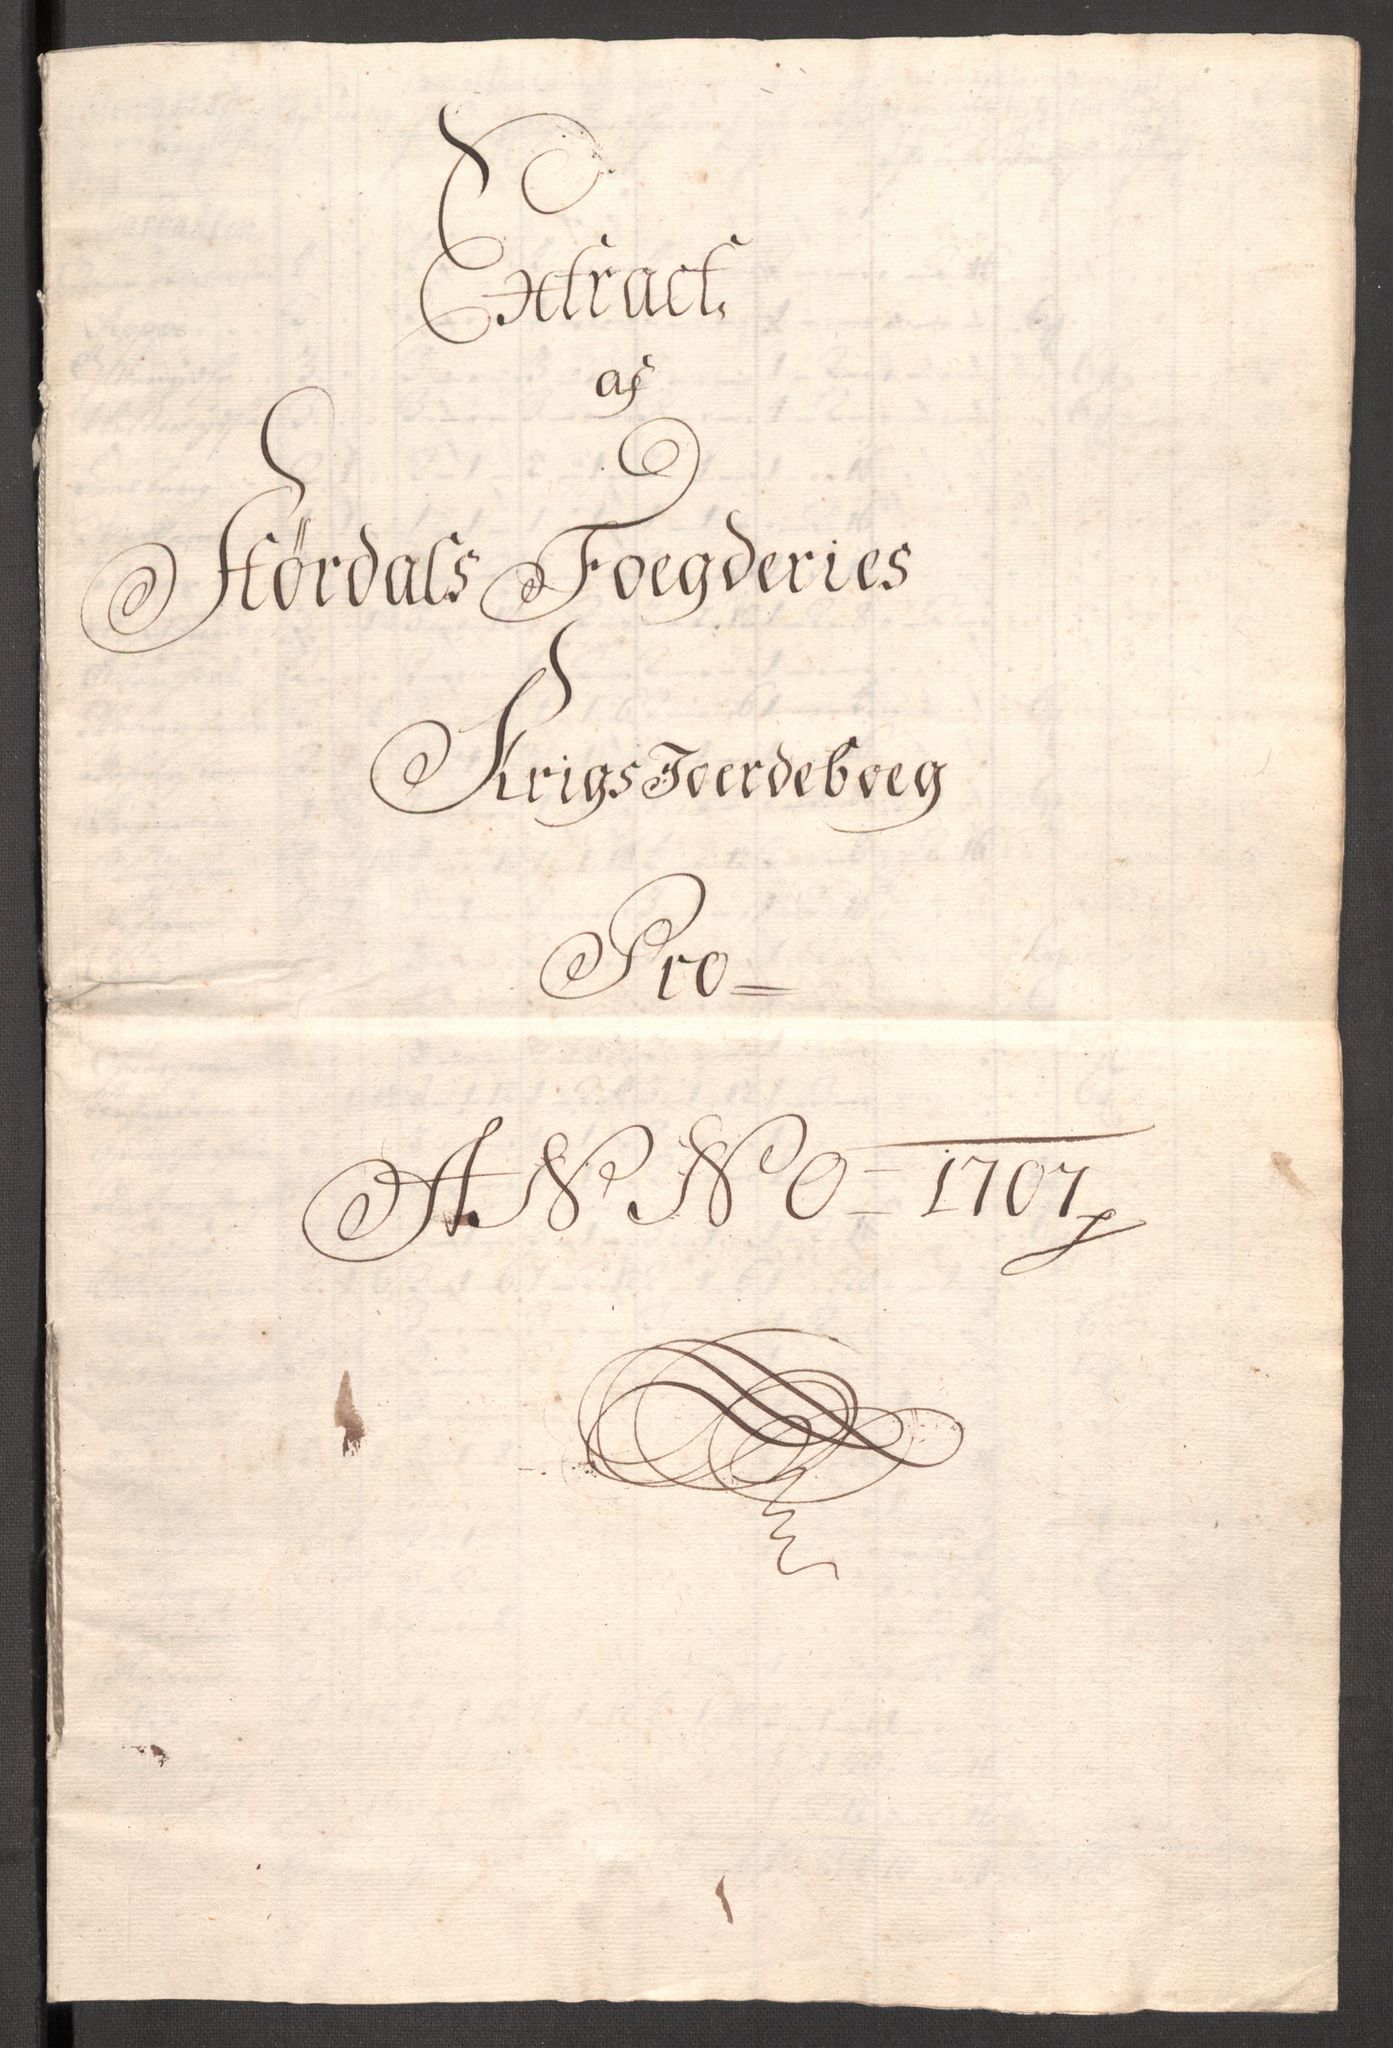 Extract
af
Stördals Foegderies
Krigs Joerdeboeg
Pro=
ANNO = 1707